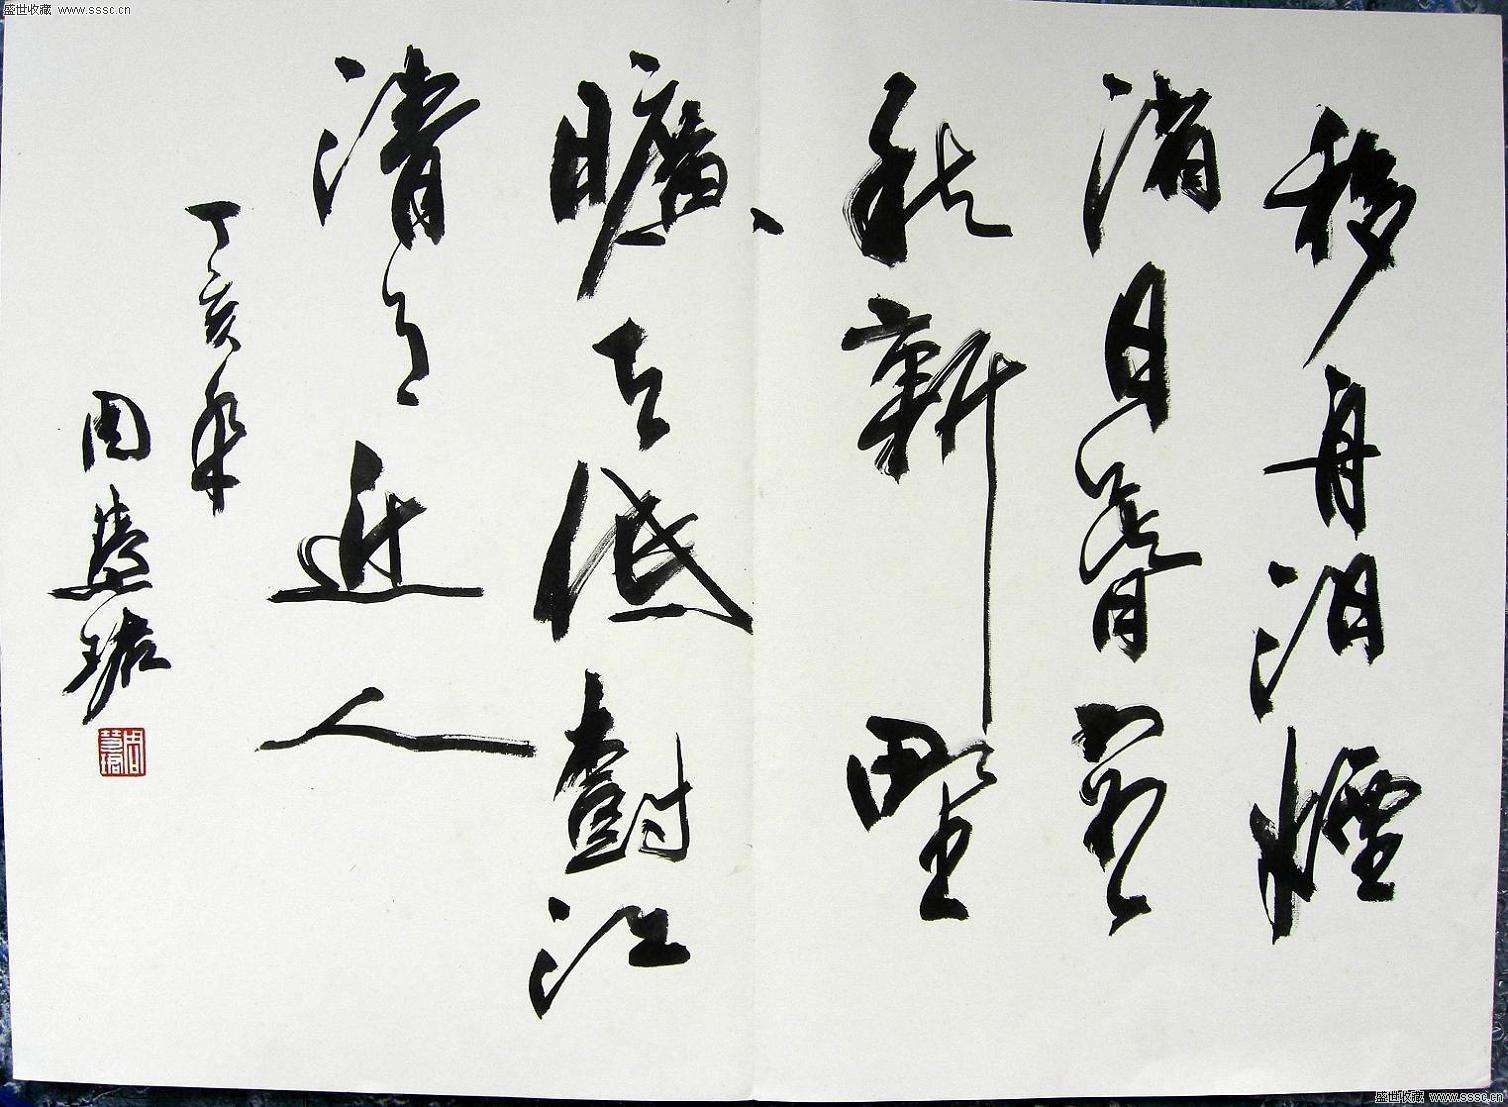 盛世收藏 www.sssc.cn
移舟泊煙
渚日暮客
愁新野
曠天低樹江
清月近人
丁亥
周慧珺
周慧珺
盛世收藏 www.sssc.cn